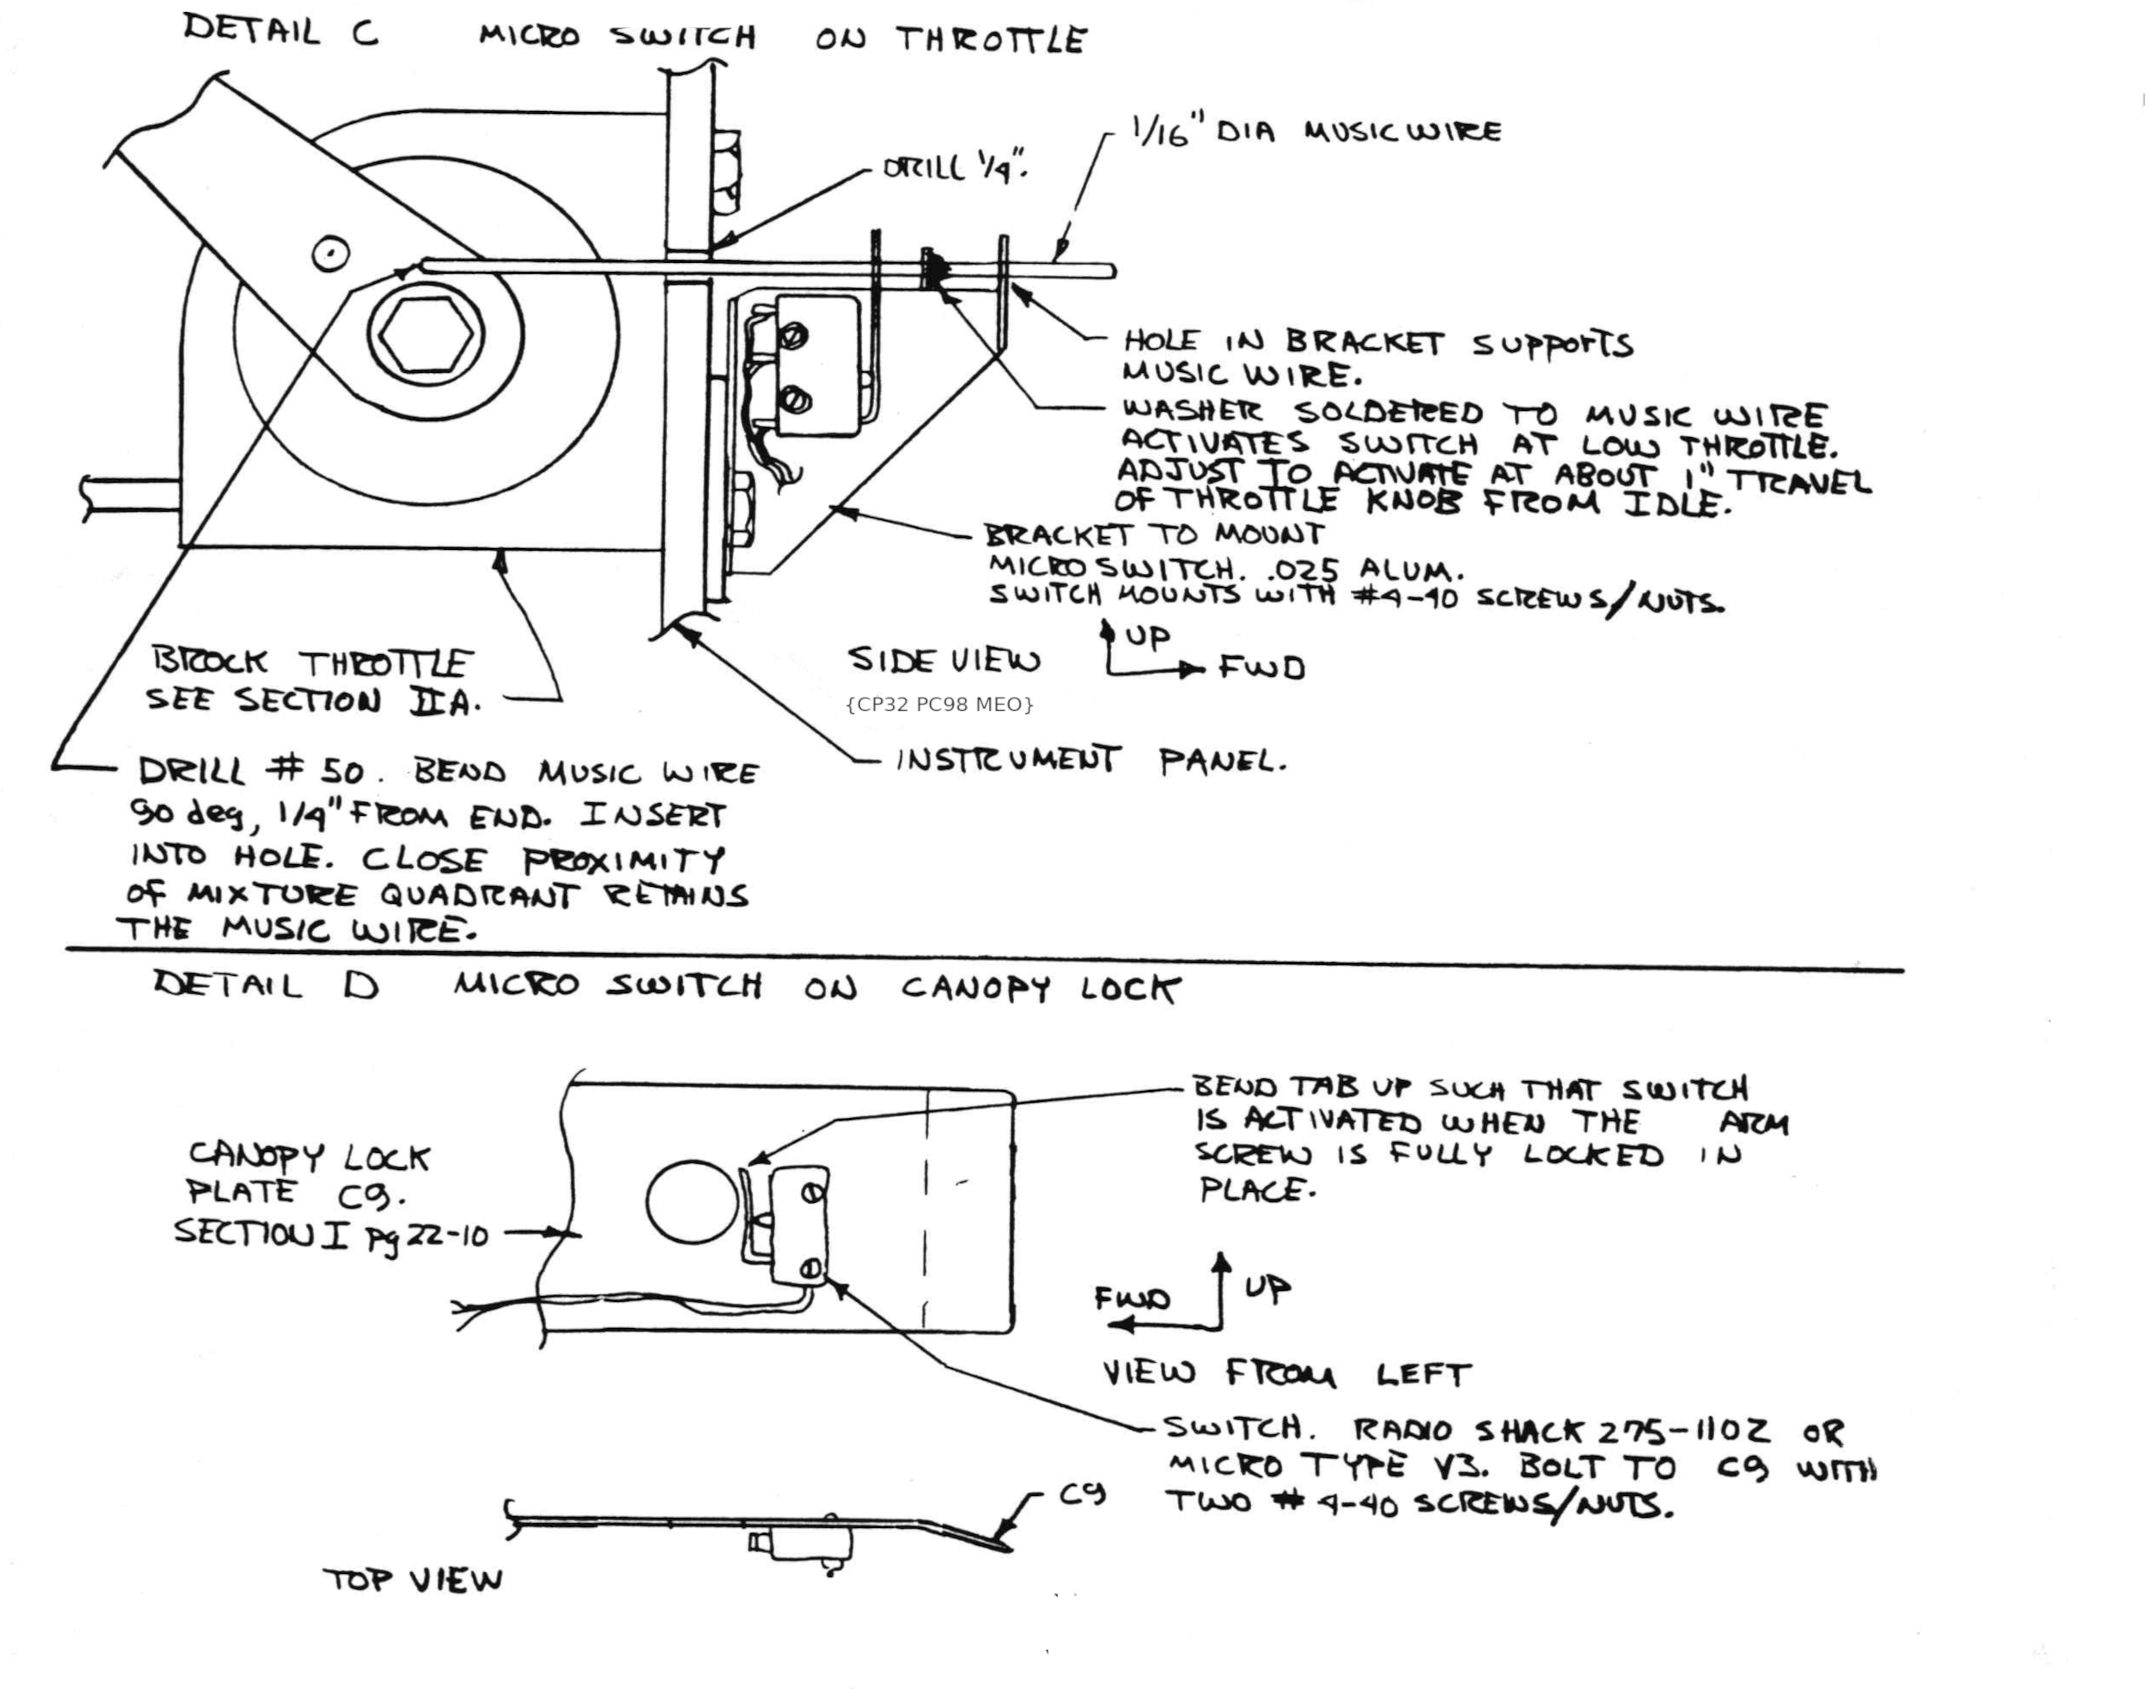 DETAIL C MICRO SWITCH ON THROTTLE
1/16" DIA MUSIC WIRE
DRILL 1/4".
HOLE IN BRACKET SUPPORTS
MUSIC WIRE.
WASHER SOLDERED TO MUSIC WIRE
ACTIVATES SWITCH AT LOW THROTTLE.
ADJUST TO ACTIVATE AT ABOUT 1" TRAVEL
OF THROTTLE KNOB FROM IDLE.
BRACKET TO MOUNT
MICRO SWITCH. .025 ALUM.
SWITCH MOUNTS WITH #4-40 SCREWS/NUTS.
UP
FWD
SIDE VIEW
{CP32 PC98 MEO}
BROCK THROTTLE
SEE SECTION IIA.
INSTRUMENT PANEL.
DRILL #50. BEND MUSIC WIRE
90 deg, 1/4" FROM END. INSERT
INTO HOLE. CLOSE PROXIMITY
OF MIXTURE QUADRANT RETAINS
THE MUSIC WIRE.
DETAIL D MICRO SWITCH ON CANOPY LOCK
BEND TAB UP SUCH THAT SWITCH
IS ACTIVATED WHEN THE ARM
SCREW IS FULLY LOCKED IN
PLACE.
CANOPY LOCK
PLATE C9.
SECTION I pg 22-10
FWD
UP
VIEW FROM LEFT
SWITCH. RADIO SHACK 275-1102 OR
MICRO TYPE V3. BOLT TO C9 WITH
TWO #4-40 SCREWS/NUTS.
C9
TOP VIEW